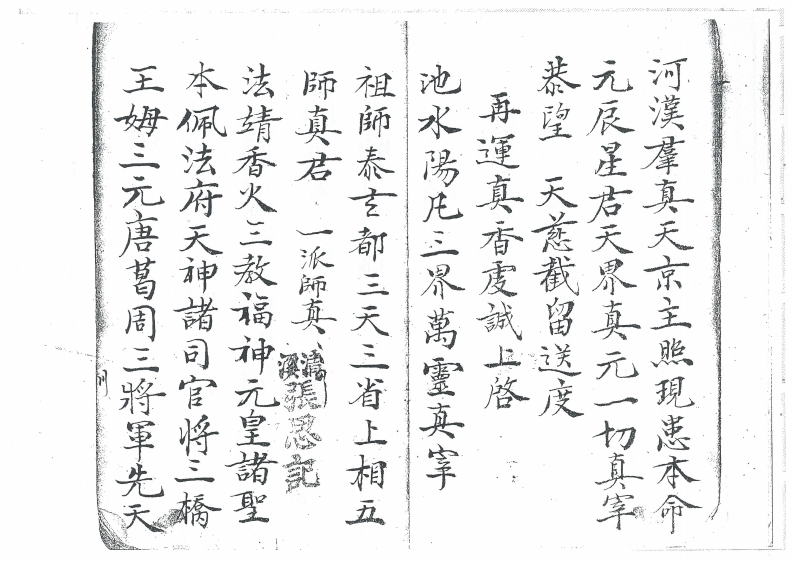 河漢羣真天京主照現患本命
元辰星君天界真元一切真宰
恭望　天慈截留送度
再運真香虔誠上啓
池水陽凡三界萬靈真宰
祖師泰玄都三天三省上相五
師真君　一派師真
清溪張思記
法靖香火三教福神元皇諸聖
本佩法府天神諸司官將三橋
王姆三元唐葛周三將軍先天